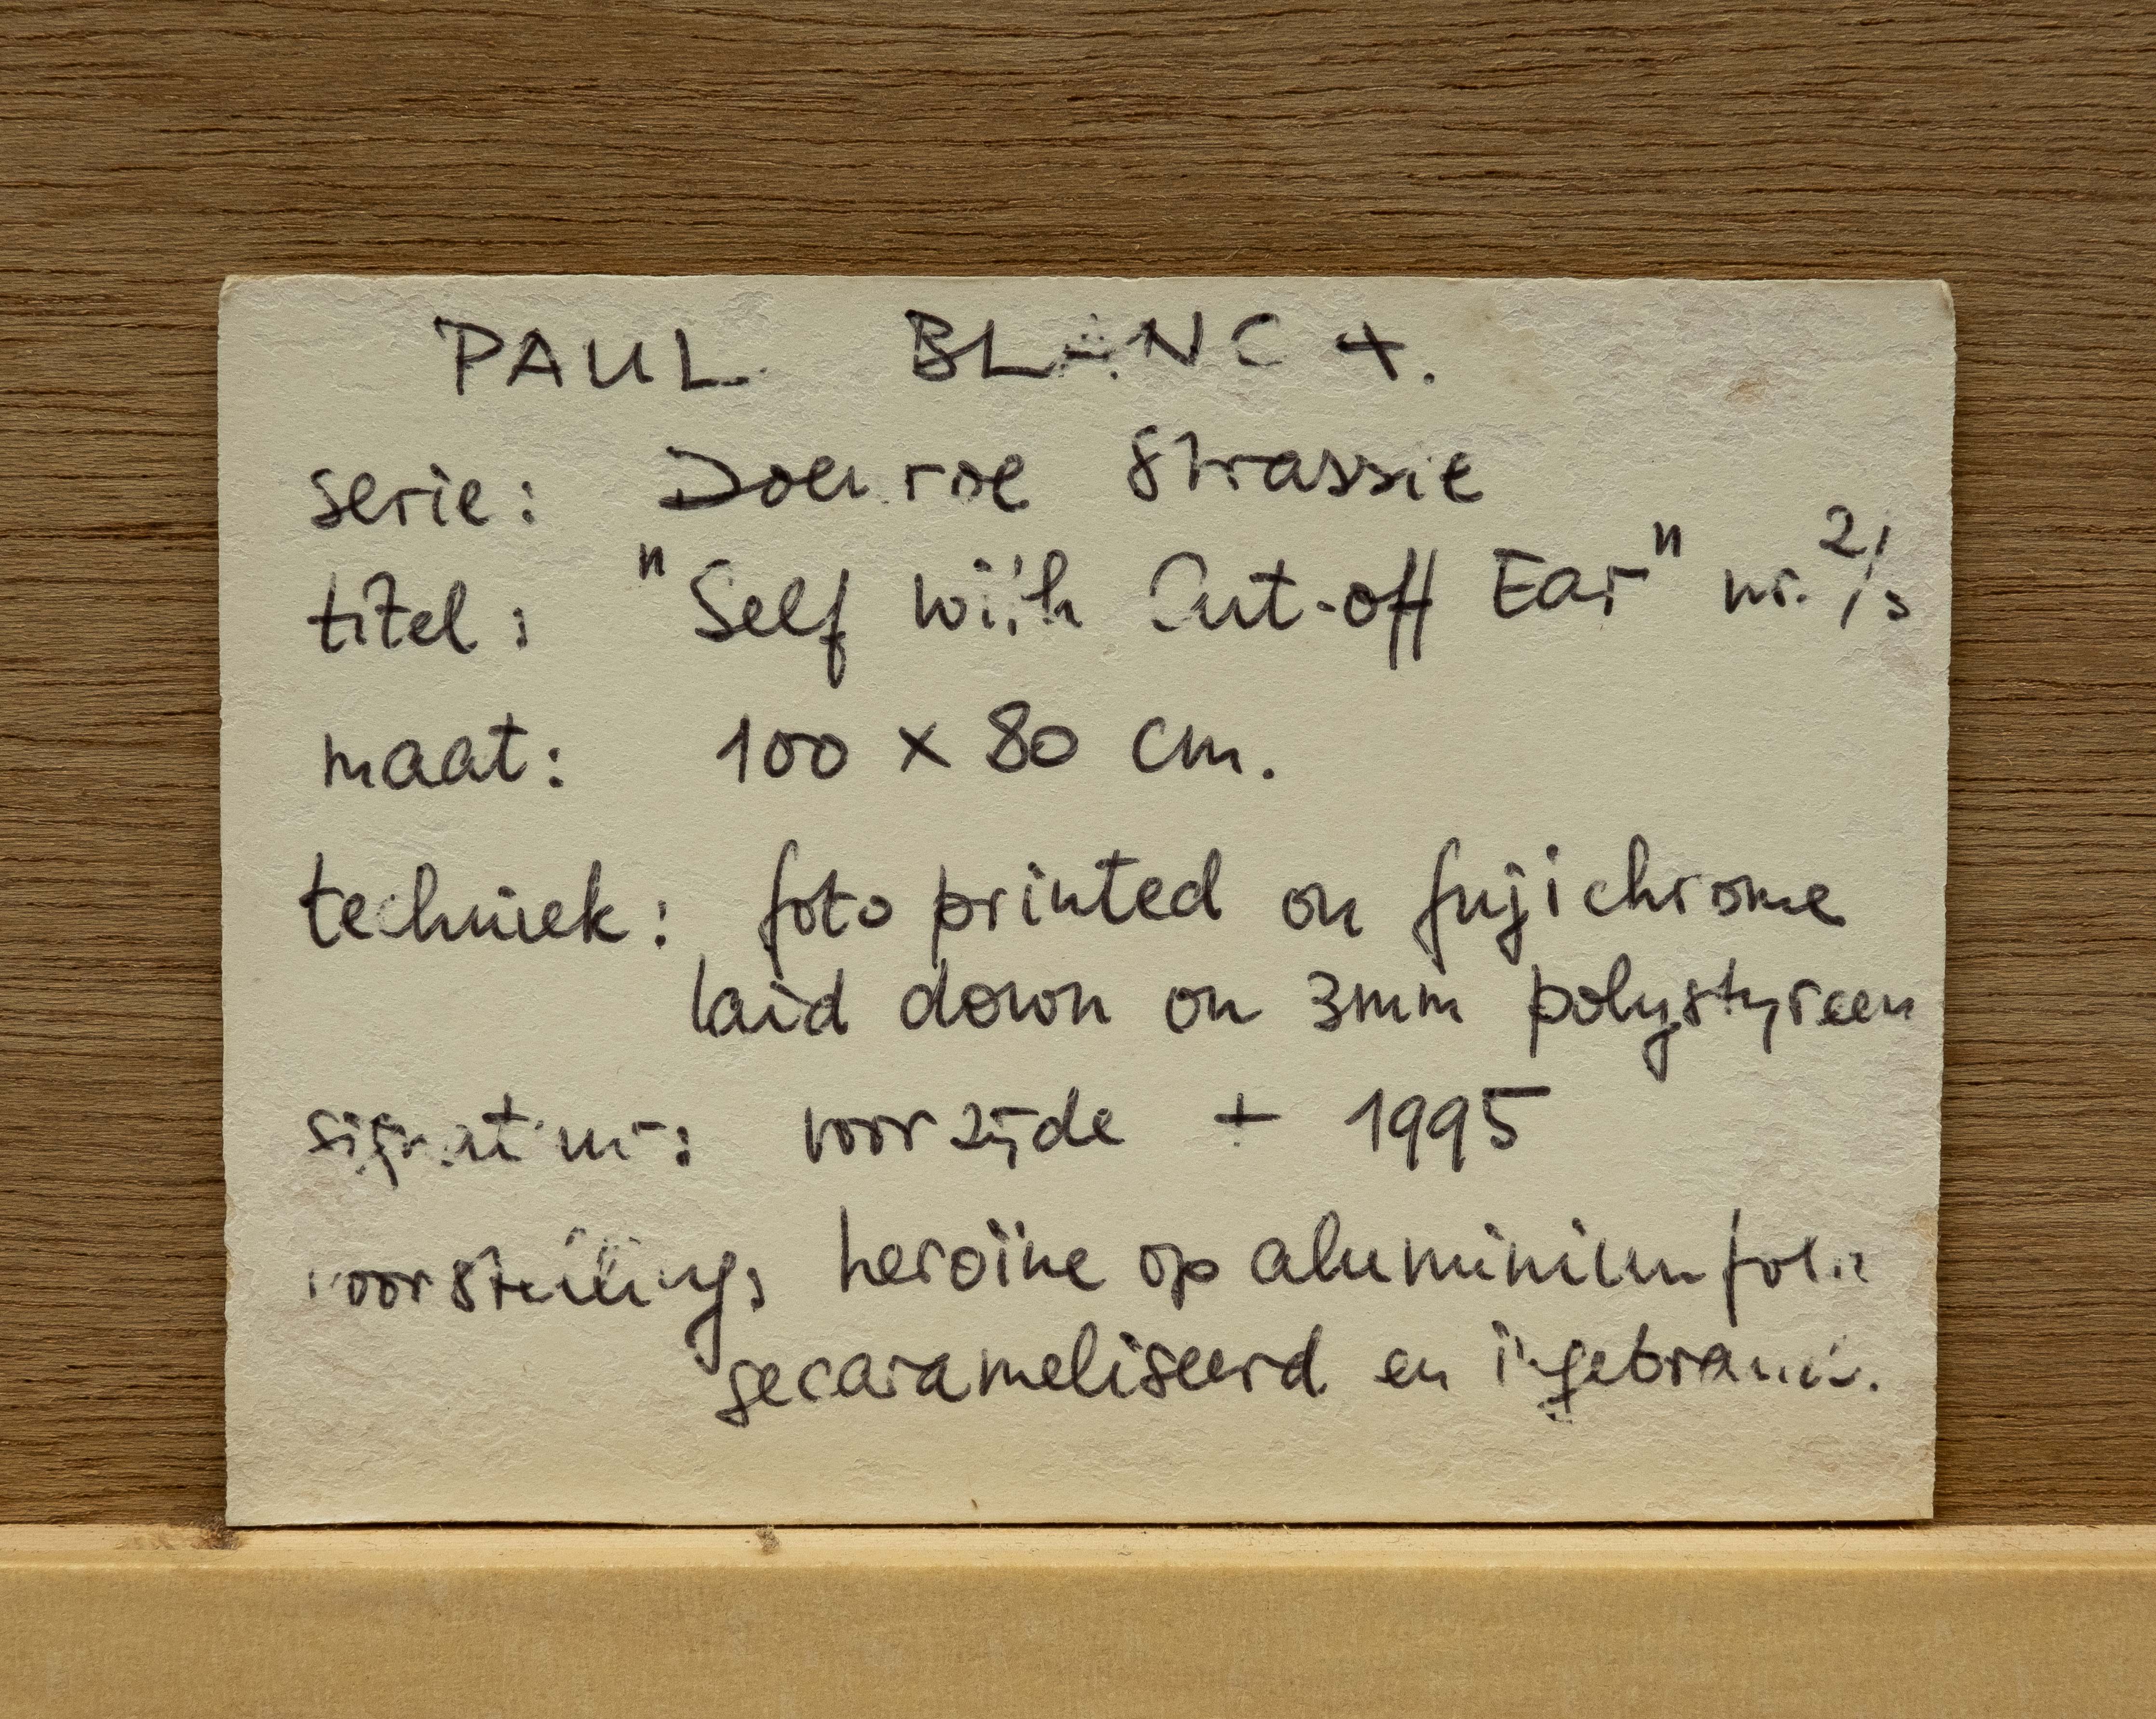 PAUL BLANCA.
serie: Doen roe Strassie
titel: "Self with Cut-off Ear" nr. 2/3
maat: 100 x 80 cm.
techniek: foto printed on fujichrome
laid down on 3mm polystyreen
signatuur: voorzijde + 1995
voorstelling: heroïne op aluminiumfolie
gecarameliseerd en ingebrand.